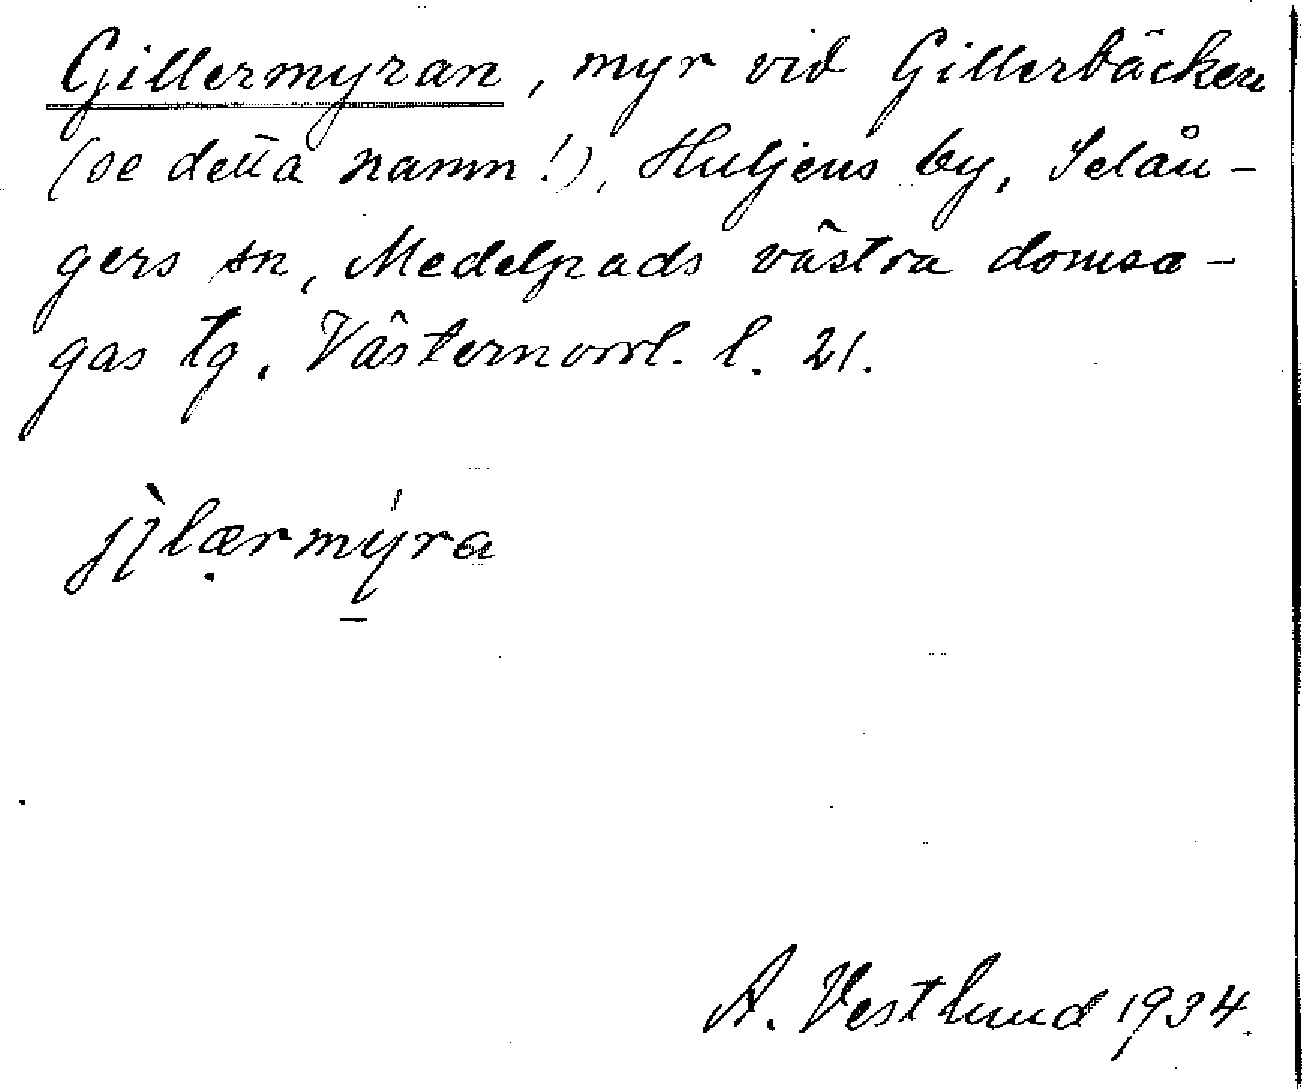 Gillermyran, myr vid Gillerbäcken
(se detta namn!), Huljens by, Selån-
gers sn, Medelpads västra domsa-
gas tg. Västernorrl. l. 21.
jìlærmýra
A. Vestlund 1934.